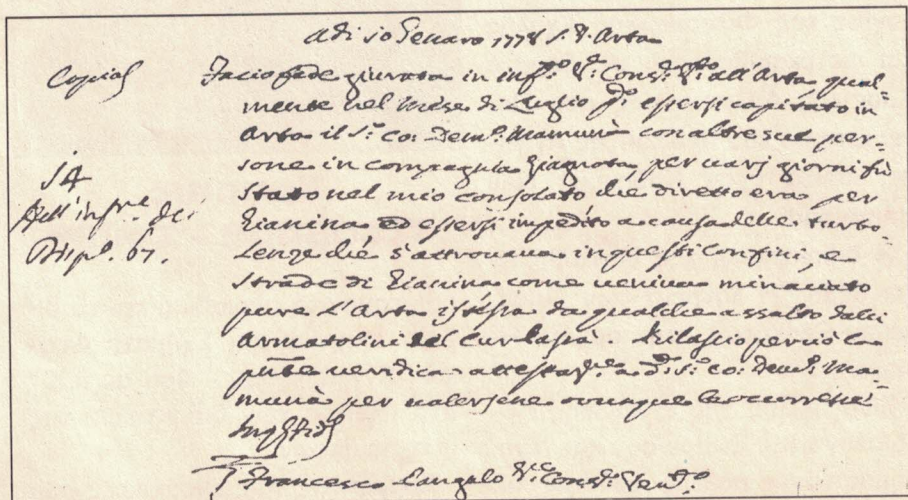 Adi 10 Genaro 1778 S. V. Arta
Copia
Facio fede giurata in infr.o V.e Cons.e V.to all'Arta qual-
mente nel mese di Luglio p.o essersi capitato in
Arta il S.r co: Dem.o Mamunà con altre sue per-
sone in compagnia per varj giorni fù
stato nel mio consolato che diretto era per
Gianina ed essersi impedito a causa delle turbo
lenze che s'attrovava in questi confini, e
strade di Gianina come veniva minaciato
pure l'Arta istessa da qualche assalto dalli
Armatolini del . Rilascio perciò la
pnte veridica a d.o S.r co: Dem.o Ma-
munà per valersene ovunque le occorresse
In q. fede
Francesco V.e Cons.e Ven.o
S A
dell' infr.e de
Disp.o 67.